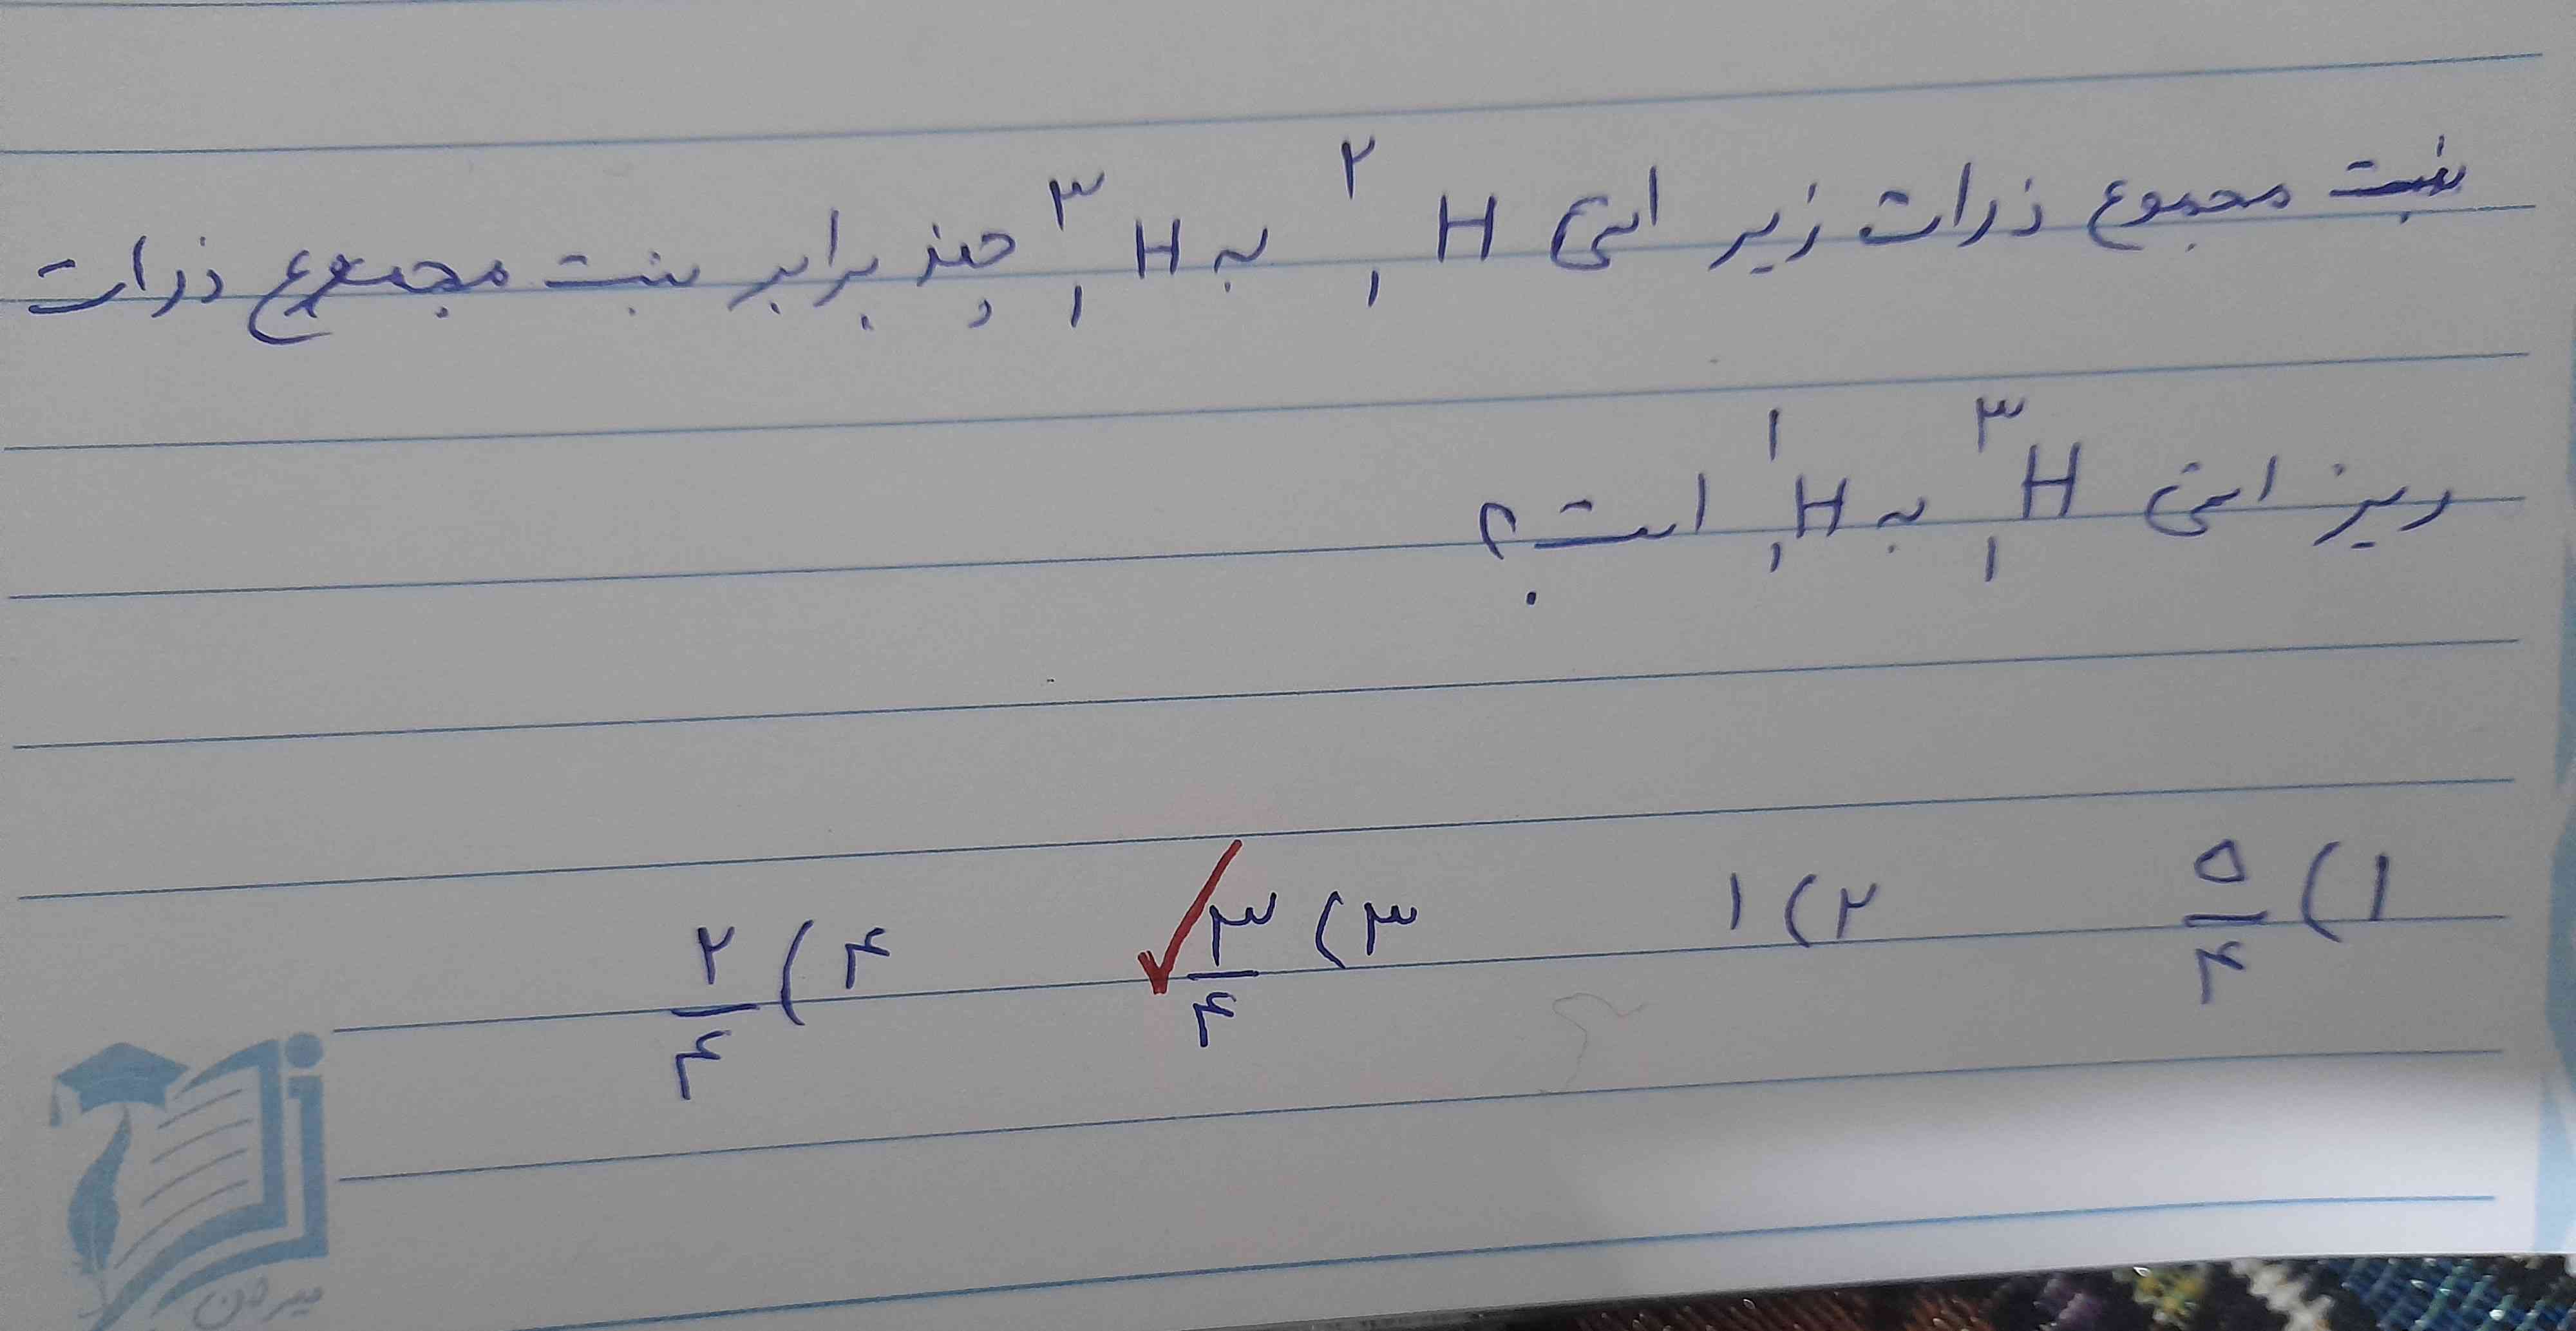 نسبت مجموع ذرات زیر اتمی ²₁H به ³₁H چند برابر نسبت مجموع ذرات
ریز اتمی ³₁H به ¹₁H است؟
۱) ۵/۴ ۲) ۱ ۳) ۳/۴ ✓ ۴) ۲/۴